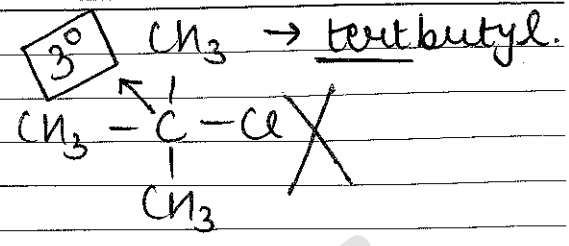 3° CH₃ → tertbutyl.
|
CH₃ – C – Cl
|
CH₃